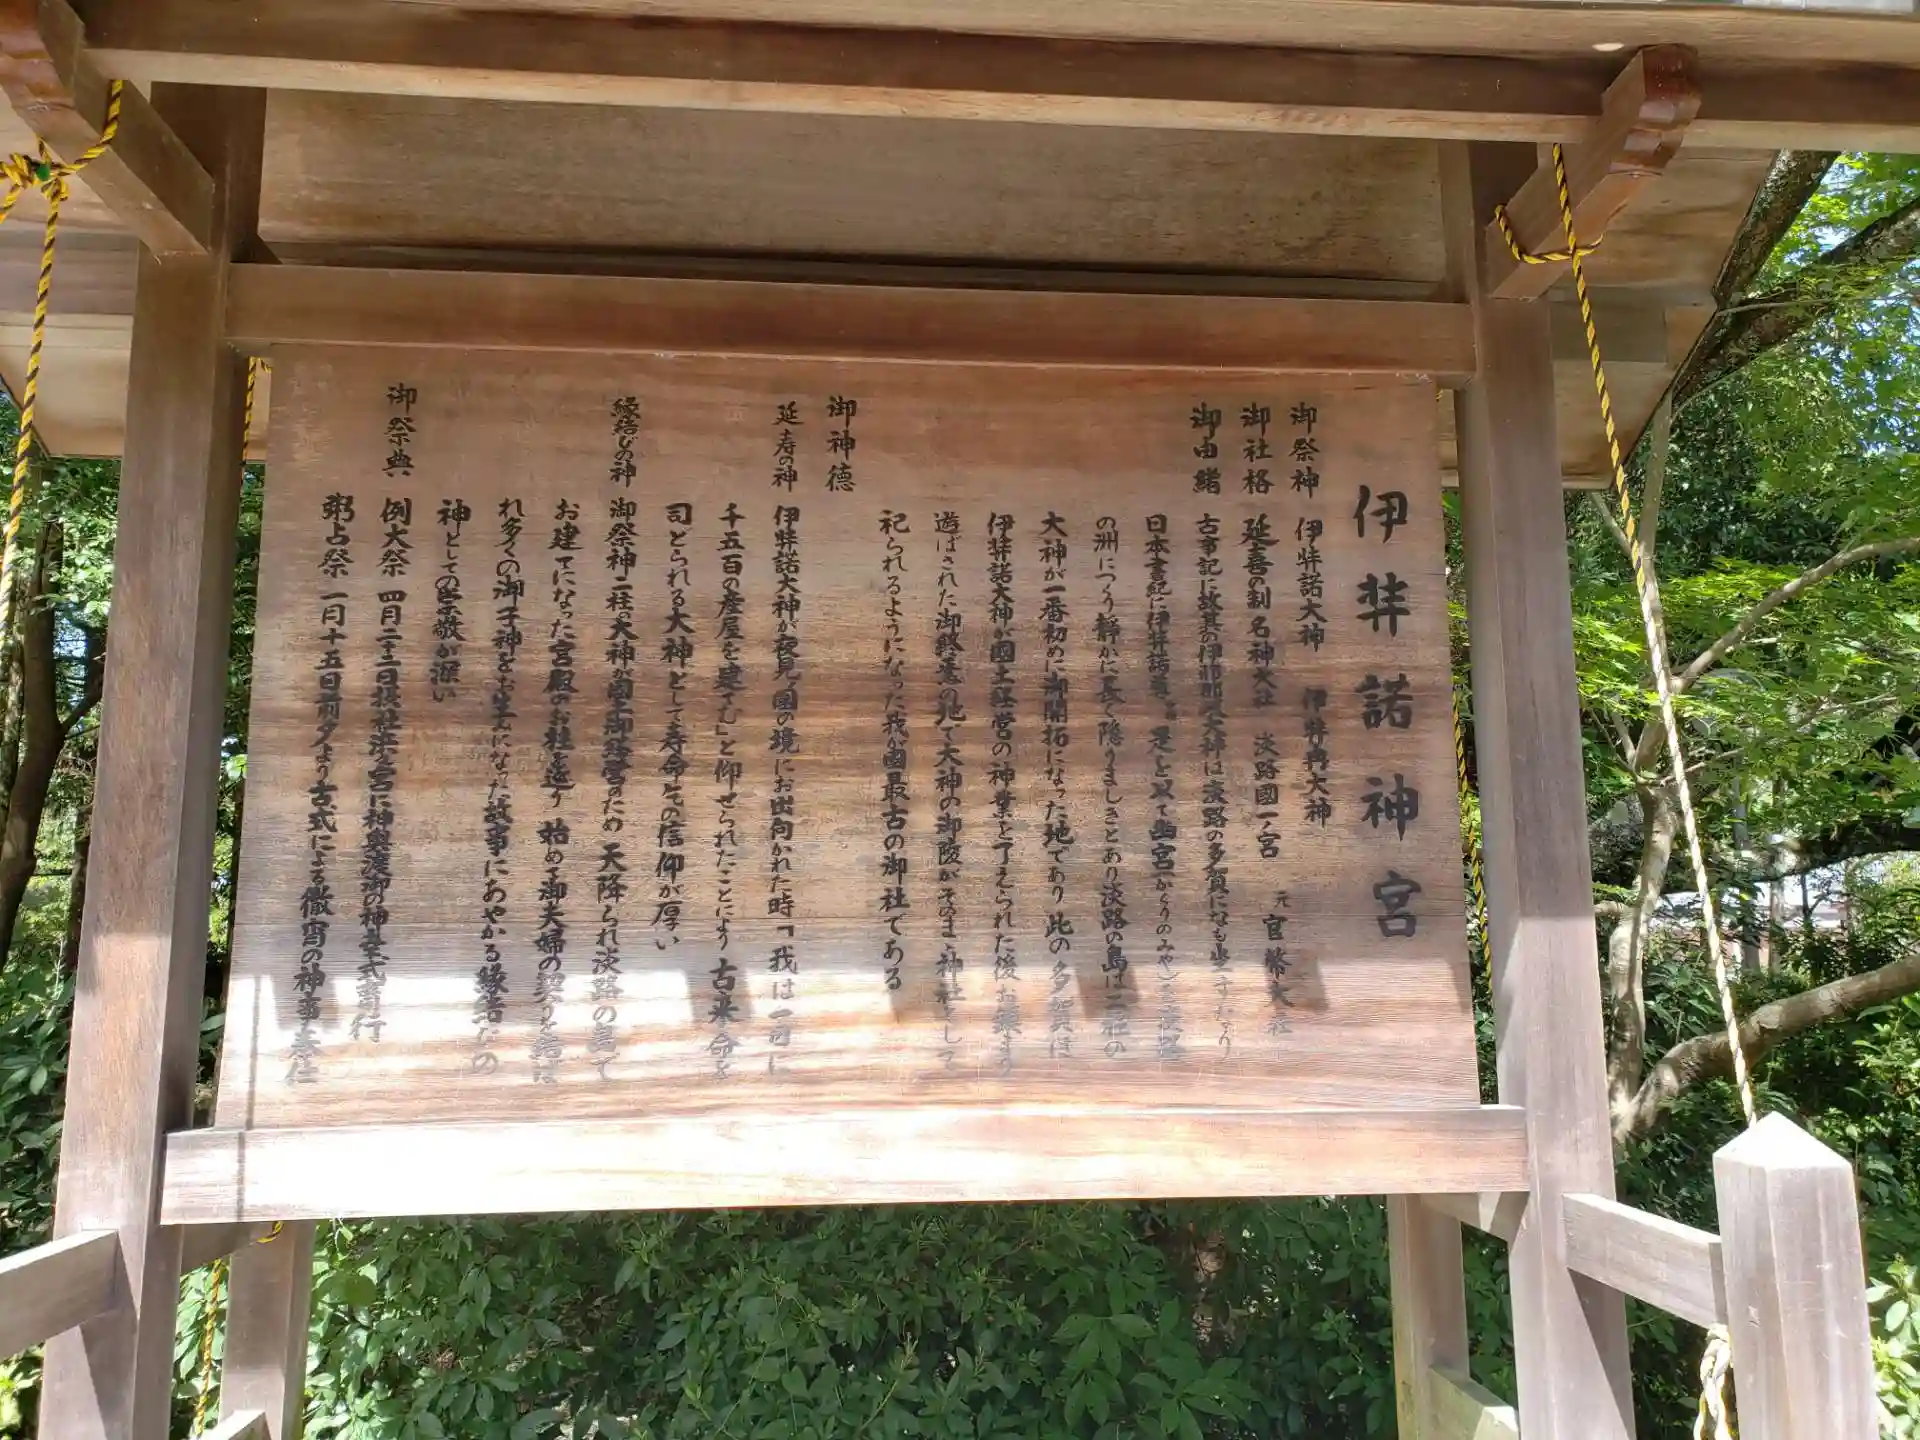 伊弉諾神宮
御祭神 伊弉諾大神 伊弉冉大神
御社格 延喜の制 名神大社 淡路國一ノ宮 元官幣大社
御由緒 古事記に故其の伊耶那岐大神は淡路の多賀になも坐すなり
日本書紀に伊弉諾尊 是を以て幽宮(かくりのみや)を淡路
の洲につくり靜かに長く隠りましきとあり淡路の島は二柱の
大神が一番初めに御開拓になった地であり 此の多賀は
伊弉諾大神が國土経営の神業を了えられた後お鎮まり
遊ばされた御終焉の地で大神の御陵がそのまゝ神社として
祀られるようになった我が國最古の御社である
御神徳
延寿の神 伊弉諾大神が夜見の國の境にお出向かれた時「我は一日に
千五百の産屋を建てむ」と仰せられたことにより 古来命を
司どられる大神として寿命との信仰が厚い
縁結びの神 御祭神二柱の大神が國土御経営のため 天降られ淡路の島で
お建てになった宮殿のお柱を巡り 始めて御夫婦の契りを結ば
れ多くの御子神をお生みになった故事にあやかる縁結びの
神としての崇敬が深い
御祭典 例大祭 四月二十二日摂社濱ノ宮に神輿渡御の神幸式斎行
粥占祭 一月十五日前夕より古式による徹宵の神事奉仕